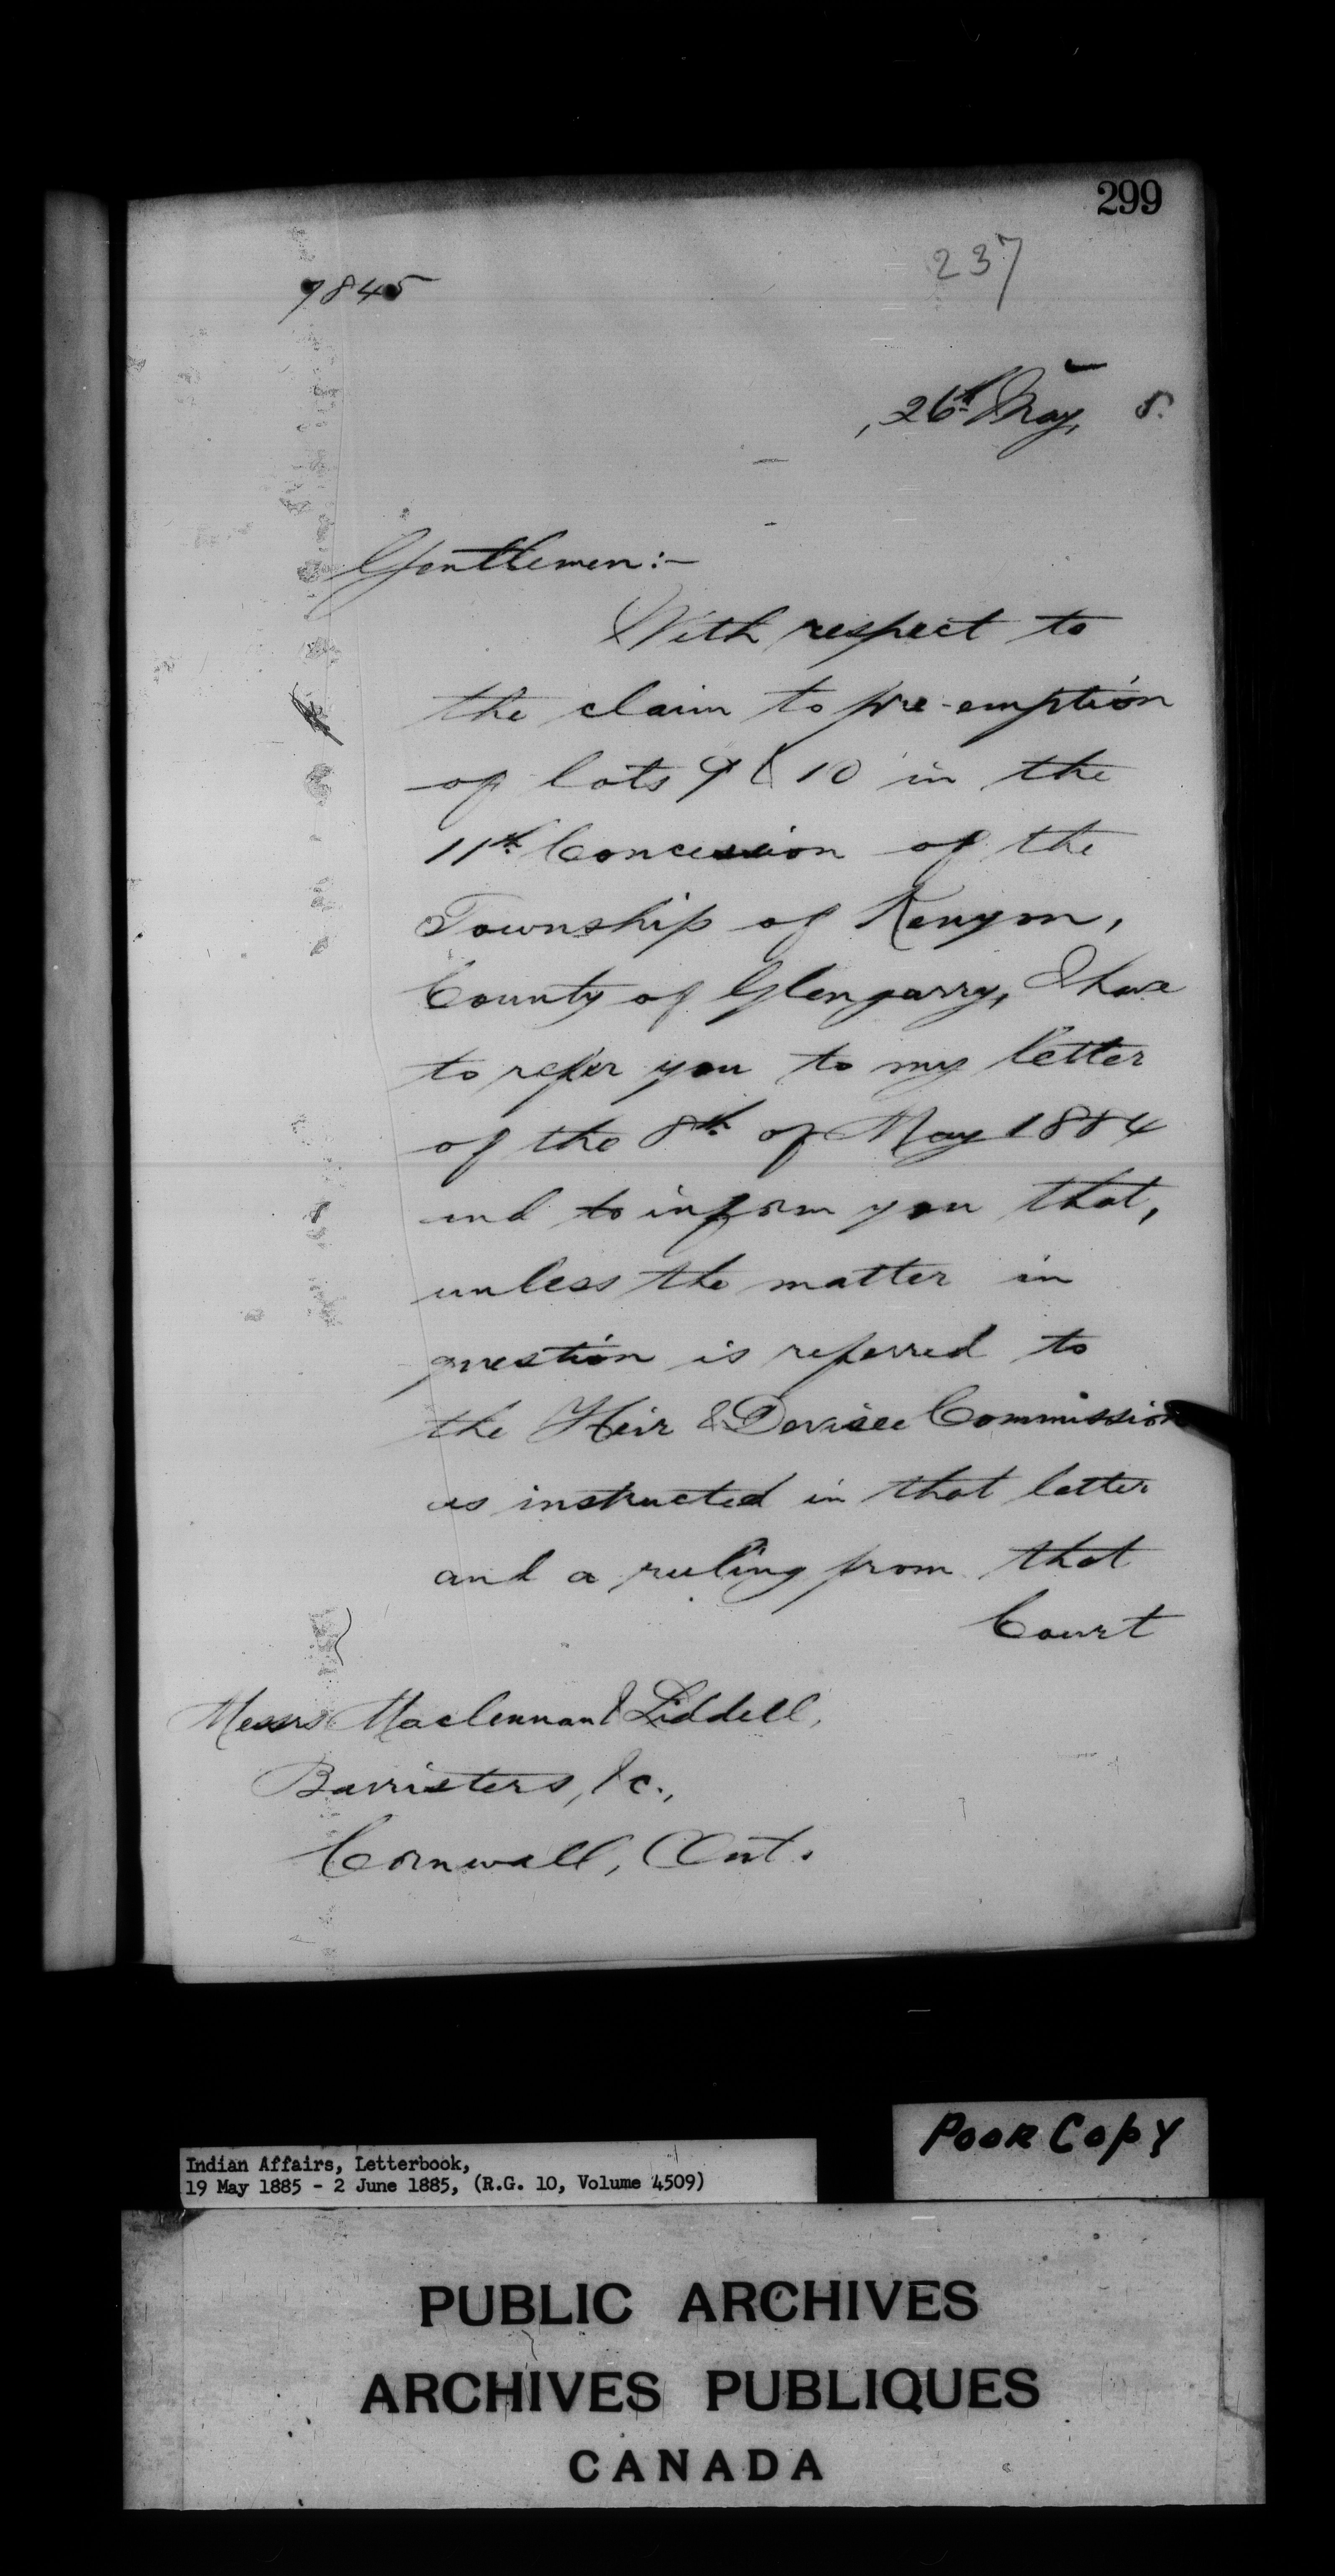 299
237
7845
, 26th May, 5.
Gentlemen:-
With respect to
the claim to pre-emption
of lots 9 & 10 in the
11th Concession of the
Township of Kenyon,
County of Glengarry, I have
to refer you to my letter
of the 8th of May 1884
and to inform you that,
unless the matter in
question is referred to
the Heir & Devisee Commission
as instructed in that letter
and a ruling from that
Court
Messrs Maclennan & Liddell,
Barristers, &c.,
Cornwall, Ont.
Poor Copy
Indian Affairs, Letterbook,
19 May 1885 - 2 June 1885, (R.G. 10, Volume 4509)
PUBLIC ARCHIVES
ARCHIVES PUBLIQUES
CANADA